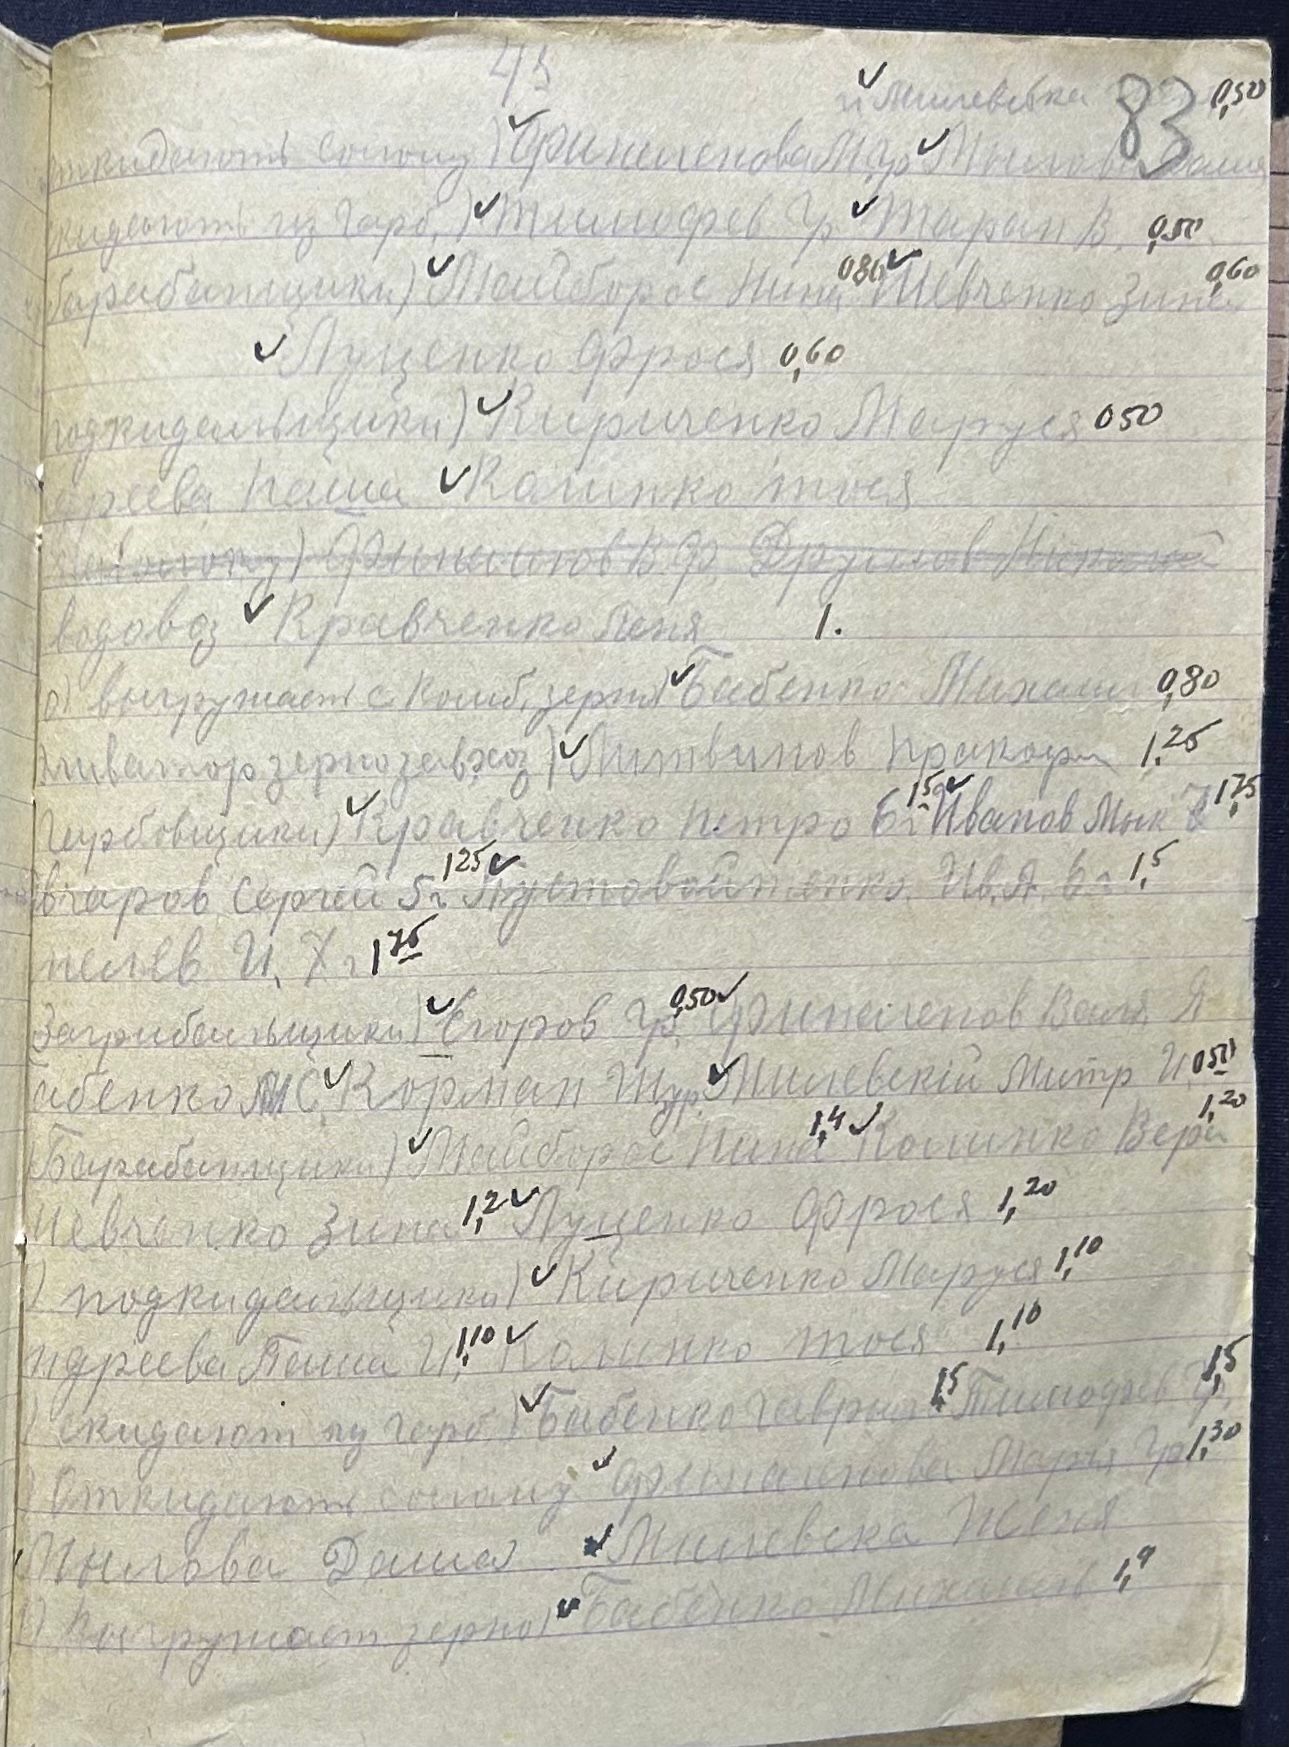 45
и Милевska 83 0,50
ткидають солому) Филипенова М.гр Мылова Даша
кидають из гарб.) Тимофев Гр Таран В. 0,50
барабанщики) Майборос Нина 080 Шевченко Зина 0,60
Луценко Фрося 0,60
подкидальщики) Кириченко Маруся 050
дреева Паша Калинко тося
водовоз Кравченко Леня 1.
о) выгружает с комб. зерна) Бабенко Михаил 0,80
ливатор зернозавхоз) Литвинов Пракофи 1,25
Гарбовщики) Кравченко петро 6г 15 Иванов Мык 7 1,75
вчаров Сергей 5г 125 Пустовойтенко Ив.Я. 6г 1,5
пелев И. 7г 1 75
Загрибальщики) Егоров Гр. 0,50 Филипенов Ваня Я
абенко М С. Корман Шур Милевскій Митр И 050
Барабанщики) Майборос Нина 1,4 Калинко Вера 1,20
Шевченко Зина 1,2 Луценко Фрося 1,20
) подкидальщики) Кириченко Маруся 1,10
ндреева Паша И. 1,10 Калинко тося 1,10
) скидают из гарб) Бабенко гаврило 1,5 Тимофев Гр. 1,5
) Откидають солому Филипенова Марія Гр 1,30
Мылова Даша Милевска Женя
) Выгружает зерно) Бабенко Михаил 1,4